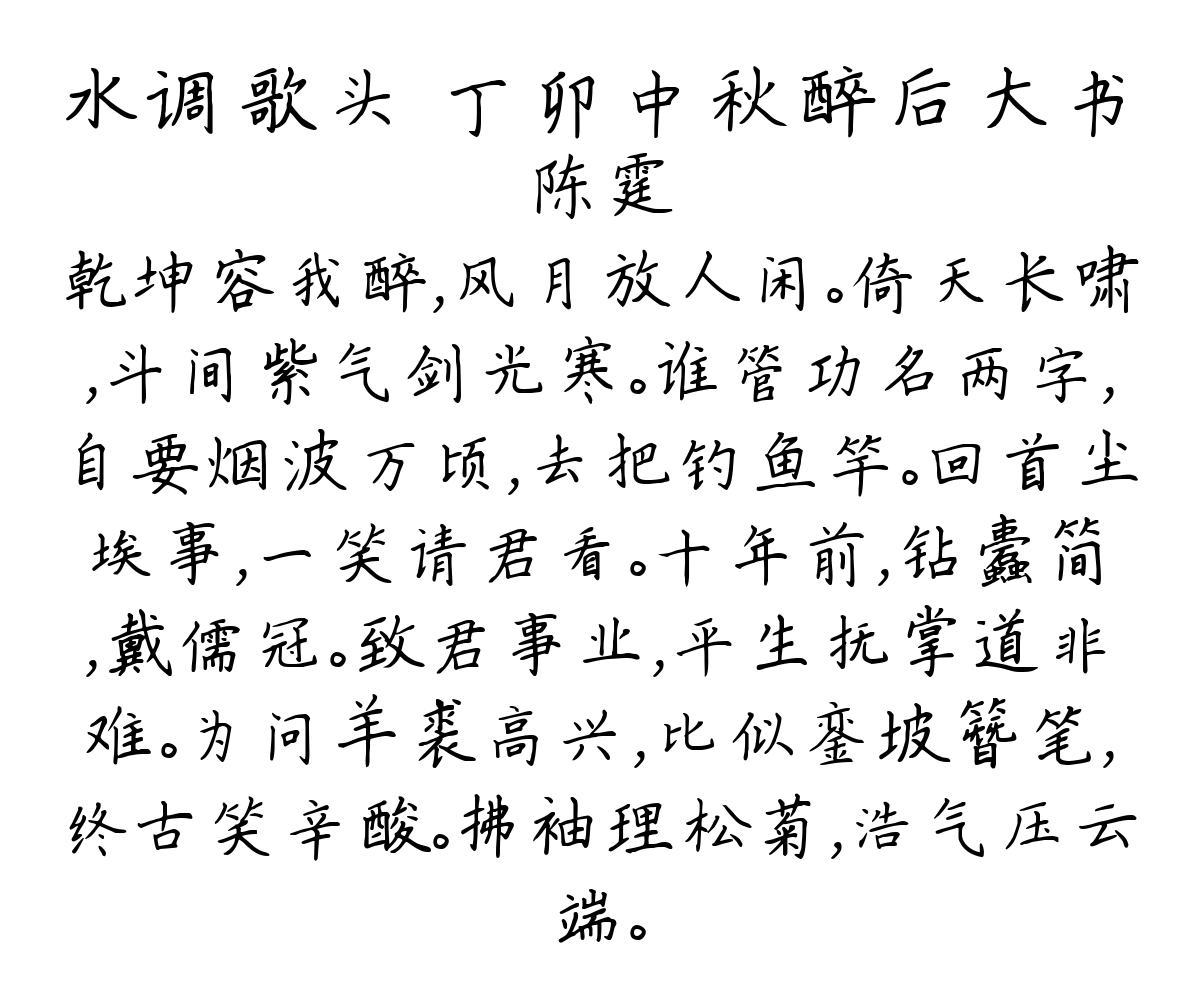 水调歌头 丁卯中秋醉后大书
陈霆
乾坤容我醉,风月放人闲。倚天长啸
,斗间紫气剑光寒。谁管功名两字,
自要烟波万顷,去把钓鱼竿。回首尘
埃事,一笑请君看。十年前,钻蠹简
,戴儒冠。致君事业,平生抚掌道非
难。为问羊裘高兴,比似銮坡簪笔,
终古笑辛酸。拂袖理松菊,浩气压云
端。